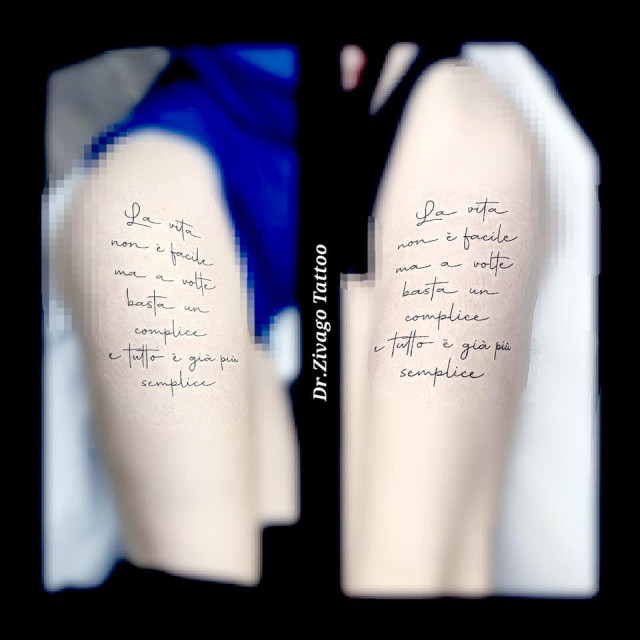 La vita
non è facile
ma a volte
basta un
complice
e tutto è già più
semplice
Dr.Zivago Tattoo
La vita
non è facile
ma a volte
basta un
complice
e tutto è già più
semplice